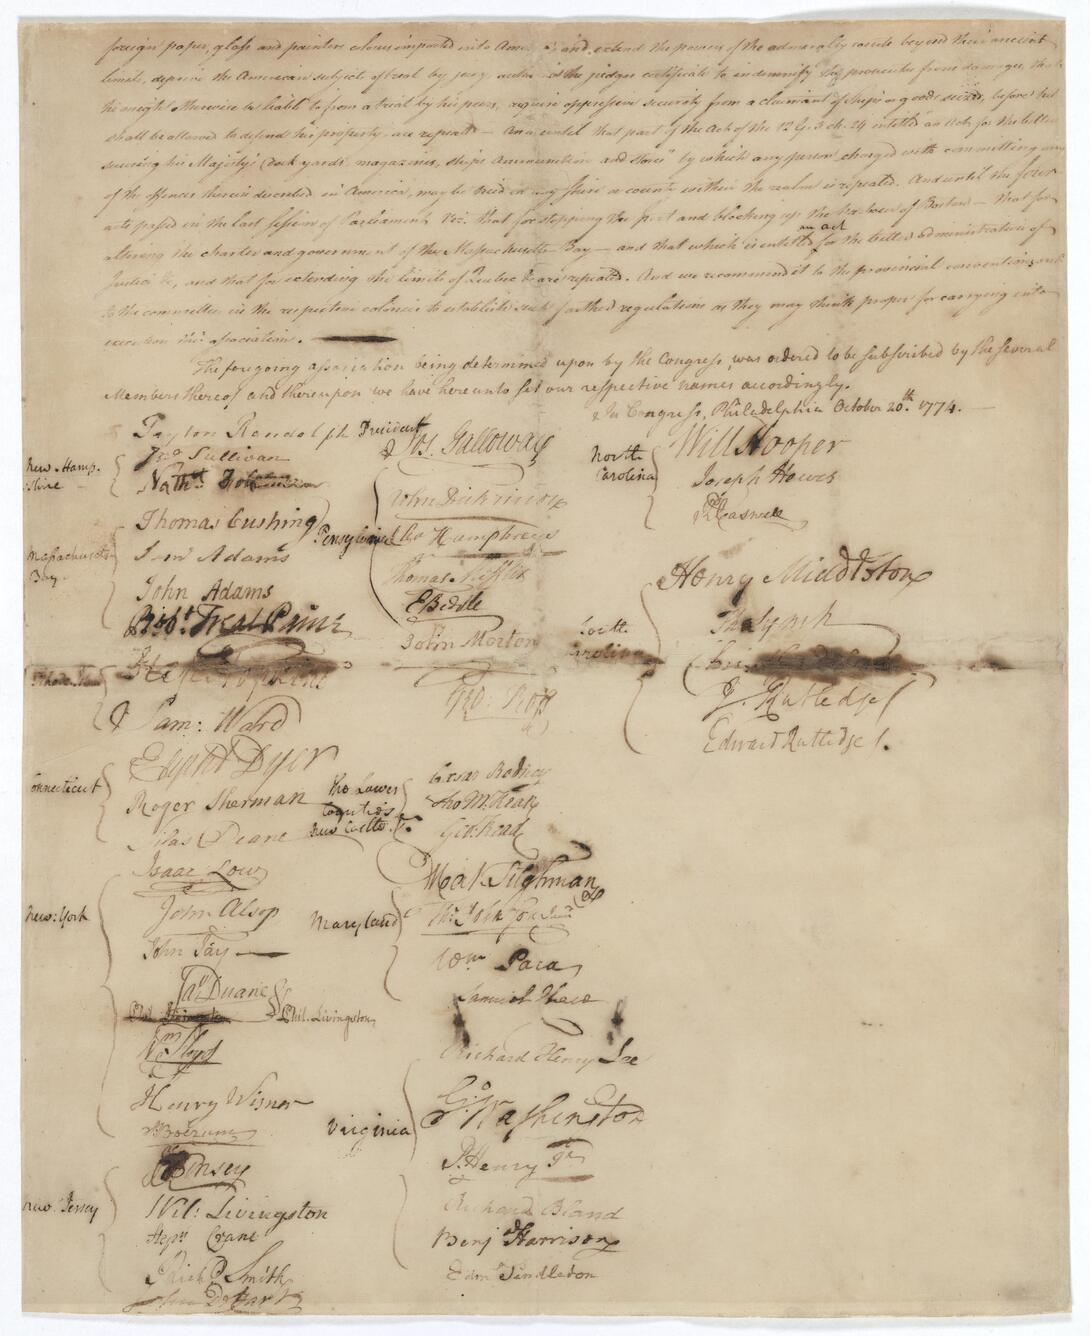 foreign paper, glass and painters colours imported into America and extend the powers of the admiralty courts beyond their ancient
limits, deprive the American subject of trial by jury, authorise the judges certificate to indemnify the prosecutor from damages, that
he might otherwise be liable to from a trial by his peers, require oppressive security from a claimant of ships or goods seized, before he
shall be allowed to defend his property, are repealed — And until that part of the Act of the 12 G. 3 ch. 24 entitled "an Act for the better
securing his Majesty's dock yards magazines, ships Ammunition and stores" by which any person charged with committing any
of the offences therein described in America, may be tried in any shire or county within the realm is repealed. And until the four
acts passed in the last session of Parliament, Viz. that for stopping the port and blocking up the harbour of Boston — that for
altering the charter and government of the Massachusetts Bay — and that which is entitled an act for the better administration of
Justice &c, and that for extending the limits of Quebec &c are repealed. And we recommend it to the provincial conventions, and
to the committees in the respective colonies to establish such farther regulations as they may think proper for carrying into
execution this association.
The foregoing association being determined upon by the Congress, was ordered to be subscribed by the several
Members thereof and thereupon we have hereunto set our respective names accordingly.
In Congress, Philadelphia October 20.th 1774.
Peyton Randolph President
New Hampshire
Jno Sullivan
Nath.l Folsom
Massachusetts Bay
Thomas Cushing
Sam Adams
John Adams
Rob.t Treat Paine
Step Hopkins
Sam: Ward
Connecticut
Elipht Dyer
Roger Sherman
Silas Deane
New-York
Isaac Low
John Alsop
John Jay
Jas Duane
Phil. Livingston
Wm Floyd
Henry Wisner
S Boerum
New Jersey
J Kinsey
Wil: Livingston
Stepn Crane
Richd Smith
John De Hart
Pensylvania
Jos. Galloway
John Dickinson
Cha Humphreys
Thomas Mifflin
E Biddle
John Morton
Geo: Ross
The Lower
Counties
New Castle
Cæsar Rodney
Tho M:Kean
Geo: Read
Maryland
Mat Tilghman
Ths Johnson Junr
Wm Paca
Samuel Chase
Virginia
Richard Henry Lee
Go Washington
P. Henry Jr
Richard Bland
Benj Harrison
Edmd Pendleton
North
Carolina
Will Hooper
Joseph Hewes
Rd Caswell
South
Carolina
Henry Middleton
Tho Lynch
J. Rutledge
Edward Rutledge